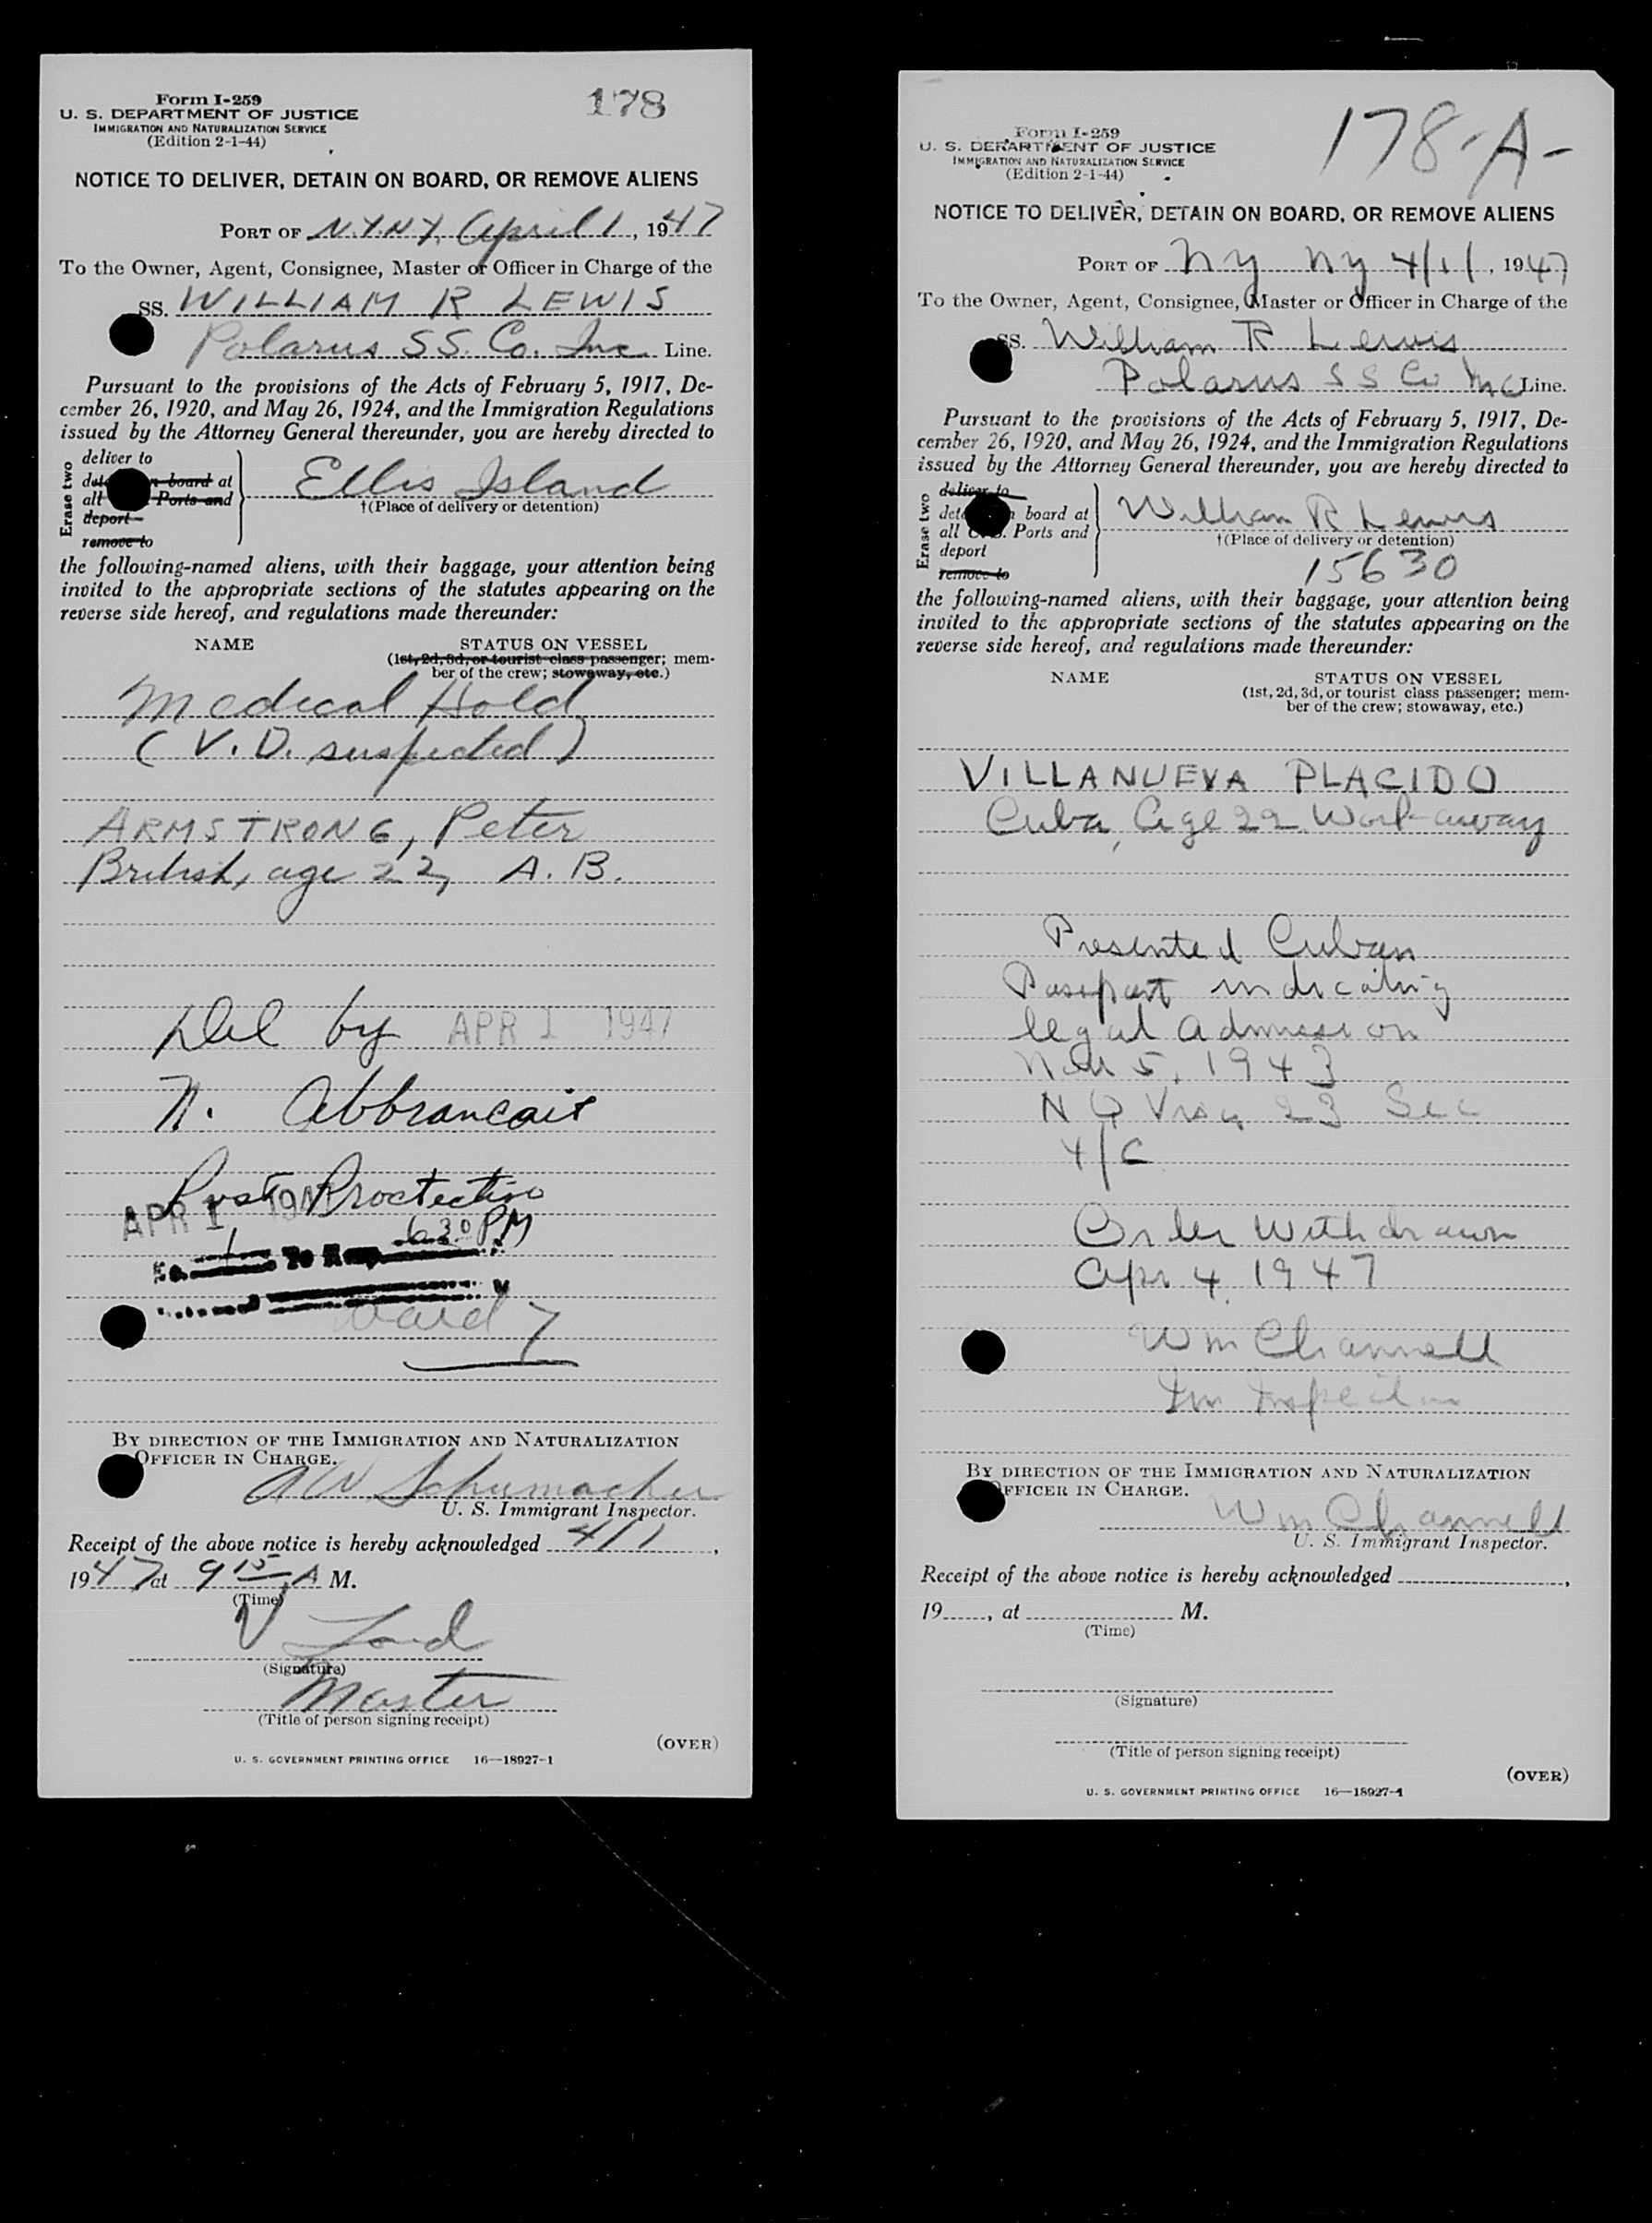 Form I-259
U. S. DEPARTMENT OF JUSTICE
IMMIGRATION AND NATURALIZATION SERVICE
(Edition 2-1-44)
178
NOTICE TO DELIVER, DETAIN ON BOARD, OR REMOVE ALIENS
PORT OF N.Y.N.Y. April 1, 1947
To the Owner, Agent, Consignee, Master or Officer in Charge of the
SS. WILLIAM R LEWIS
Polarus SS. Co. Inc. Line.
Pursuant to the provisions of the Acts of February 5, 1917, De-
cember 26, 1920, and May 26, 1924, and the Immigration Regulations
issued by the Attorney General thereunder, you are hereby directed to
Erase two
deliver to
board at
all Ports and
deport
remove to
Ellis Island
†(Place of delivery or detention)
the following-named aliens, with their baggage, your attention being
invited to the appropriate sections of the statutes appearing on the
reverse side hereof, and regulations made thereunder:
NAME STATUS ON VESSEL
(1st, 2d, 3d, or tourist class passenger; mem-
ber of the crew; stowaway, etc.)
Medical Hold
(V.D. suspected)
ARMSTRONG, Peter
British, age 22, A.B.
Del by APR 1 1947
N. Abbrancais
Post Proctective
APR 1 194
6 30 PM
1 To
Ward 7
BY DIRECTION OF THE IMMIGRATION AND NATURALIZATION
OFFICER IN CHARGE.
A W Schumacher
U. S. Immigrant Inspector.
Receipt of the above notice is hereby acknowledged 4/1,
1947 at 9 15 A M.
(Time)
(Signature)
Master
(Title of person signing receipt)
(OVER)
U. S. GOVERNMENT PRINTING OFFICE 16—18927-1
Form I-259
U. S. DEPARTMENT OF JUSTICE
IMMIGRATION AND NATURALIZATION SERVICE
(Edition 2-1-44)
178-A-
NOTICE TO DELIVER, DETAIN ON BOARD, OR REMOVE ALIENS
PORT OF NY NY 4/1/, 1947
To the Owner, Agent, Consignee, Master or Officer in Charge of the
SS. William R Lewis
Polarus S S Co Inc Line.
Pursuant to the provisions of the Acts of February 5, 1917, De-
cember 26, 1920, and May 26, 1924, and the Immigration Regulations
issued by the Attorney General thereunder, you are hereby directed to
Erase two
deliver to
board at
all Ports and
deport
remove to
William R Lewis
†(Place of delivery or detention)
15630
the following-named aliens, with their baggage, your attention being
invited to the appropriate sections of the statutes appearing on the
reverse side hereof, and regulations made thereunder:
NAME STATUS ON VESSEL
(1st, 2d, 3d, or tourist class passenger; mem-
ber of the crew; stowaway, etc.)
VILLANUEVA PLACIDO
Cuba, Age 22 Workaway
Presented Cuban
Passport indicating
legal admission
5, 1943
N Q Visa 23 Sec
4/C
Order Withdrawn
Apr 4, 1947
Wm Channell
Im Inspector
BY DIRECTION OF THE IMMIGRATION AND NATURALIZATION
OFFICER IN CHARGE.
Wm Channell
U. S. Immigrant Inspector.
Receipt of the above notice is hereby acknowledged ,
19 , at M.
(Time)
(Signature)
(Title of person signing receipt)
(OVER)
U. S. GOVERNMENT PRINTING OFFICE 16—18927-1